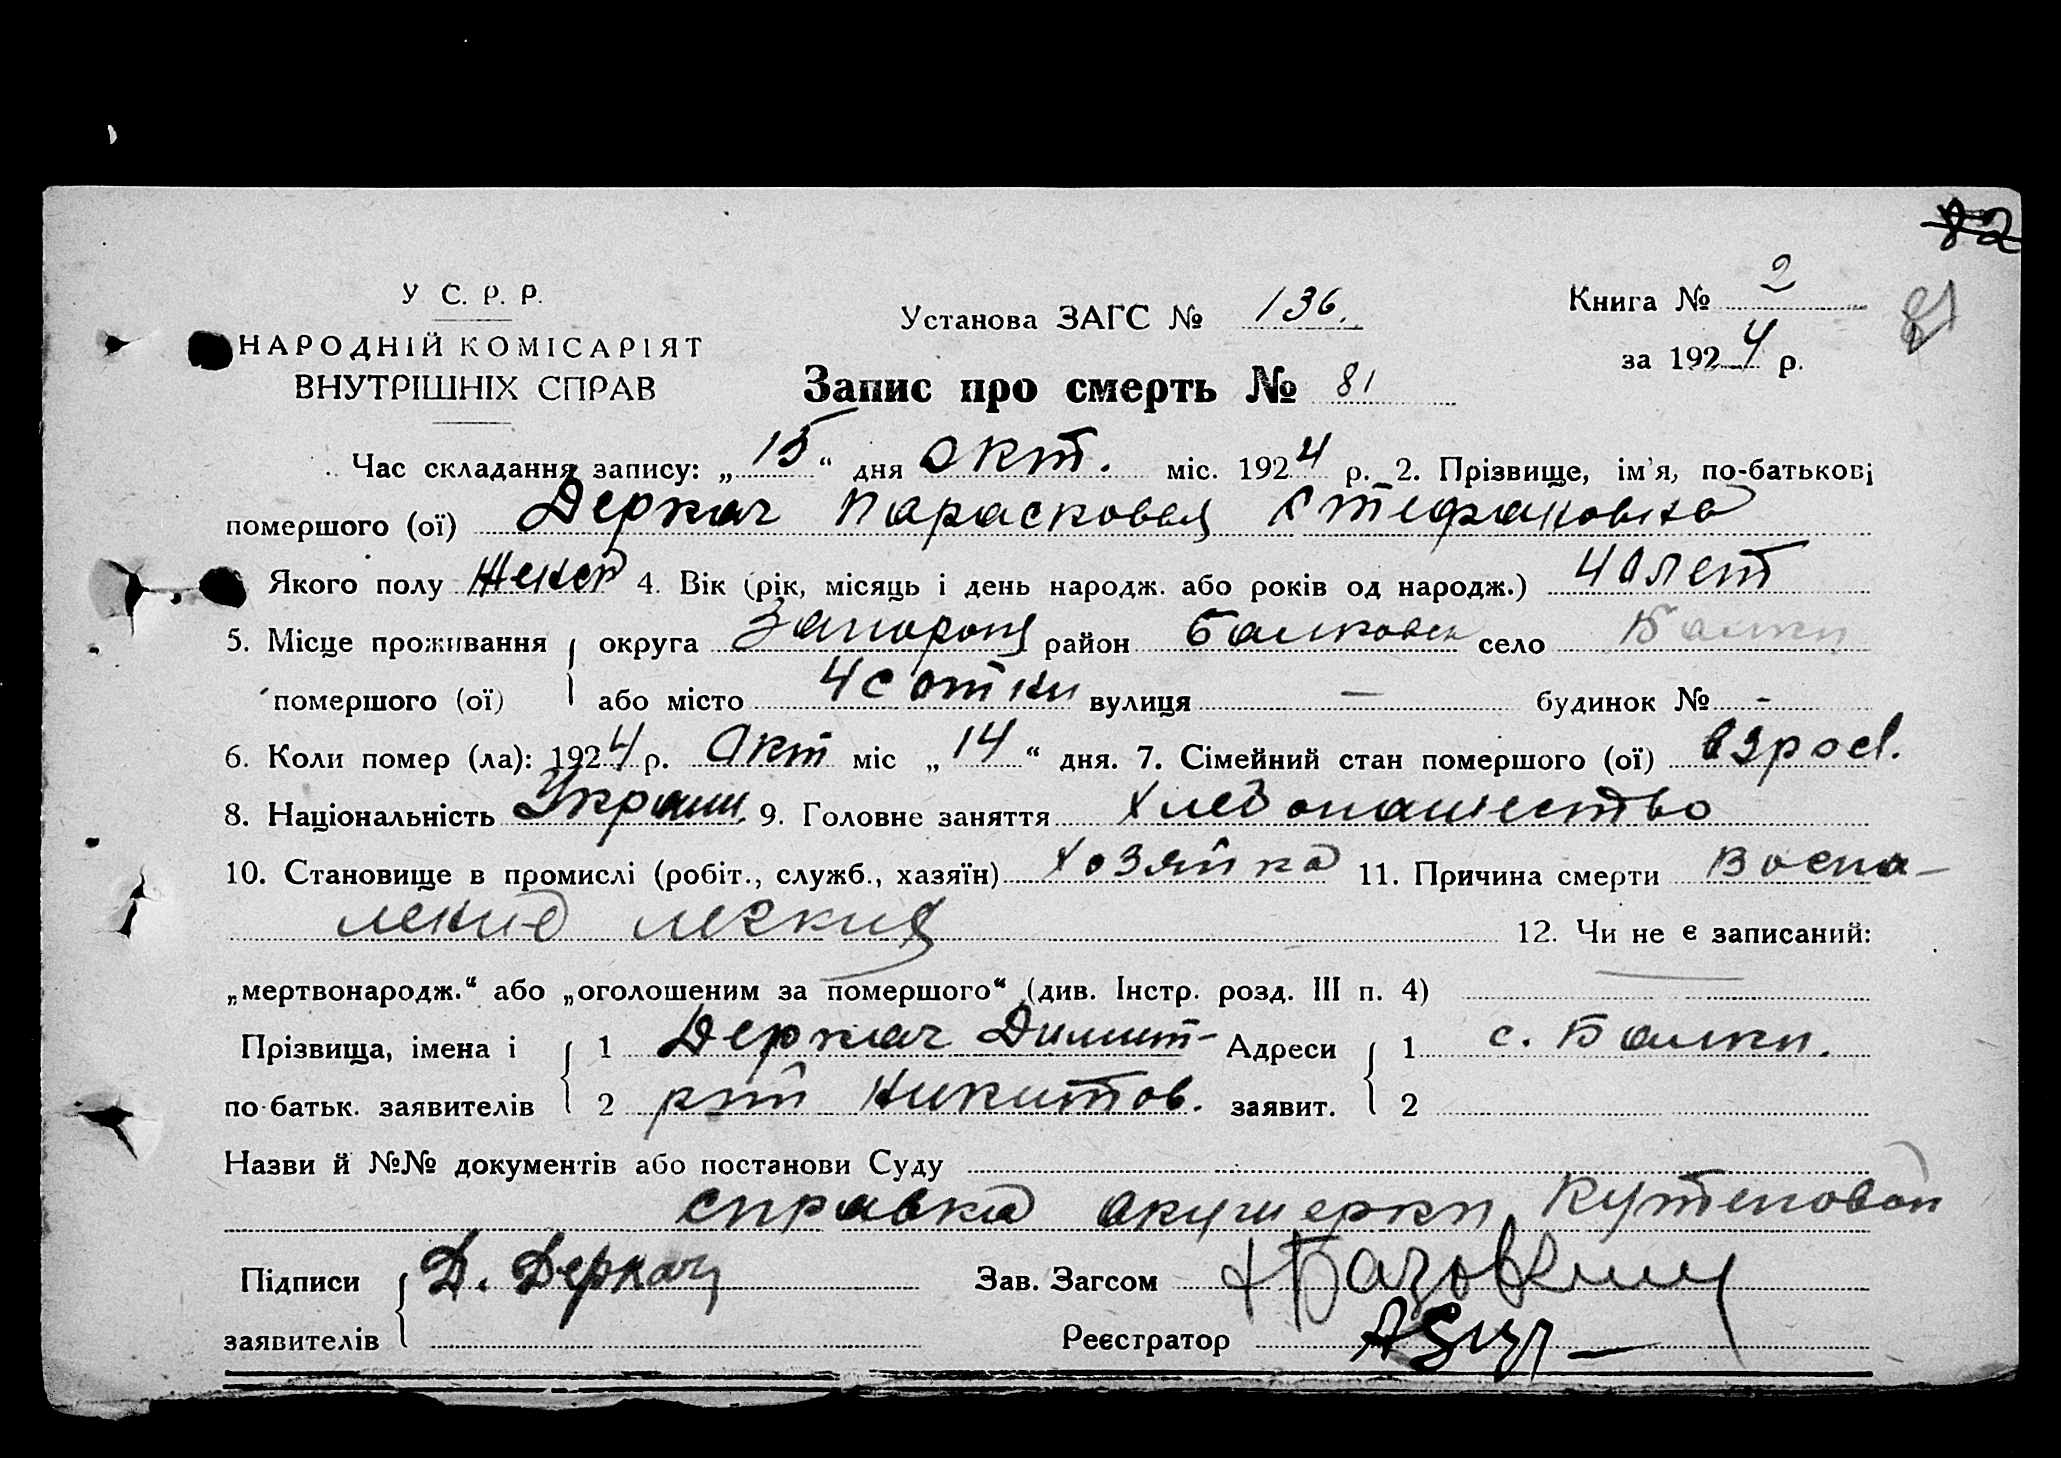 82
У С. Р. Р.
Установа ЗАГС № 136.
Книга № 2
81
НАРОДНІЙ КОМІСАРІЯТ
за 1924 р.
ВНУТРІШНІХ СПРАВ
Запис про смерть № 81
Час складання запису: „15“ дня окт. міс. 1924 р. 2. Прізвище, ім’я, по-батькові
помершого (ої) Деркач Парасковея Стефановна
Якого полу женск 4. Вік (рік, місяць і день народж. або років од народж.) 40 лет
5. Місце проживання округа Запорож район Балковск село Балки
помершого (ої) або місто 4 сотни вулиця — будинок № -
6. Коли помер (ла): 1924 р. Окт міс „14“ дня. 7. Сімейний стан помершого (ої) взросл.
8. Національність Украин. 9. Головне заняття хлебопашество
10. Становище в промислі (робіт., служб., хазяїн) хозяйка 11. Причина смерти Воспа-
ление легких 12. Чи не є записаний:
„мертвонародж.“ або „оголошеним за помершого“ (див. Інстр. розд. III п. 4) —
Прізвища, імена і 1 Деркач Димит- Адреси 1 с. Балки.
по-батьк. заявителів 2 рий Никитов. заявит. 2
Назви й №№ документів або постанови Суду
справка акушерки Кутеповой
Підписи Д. Деркач Зав. Загсом
заявителів Реєстратор